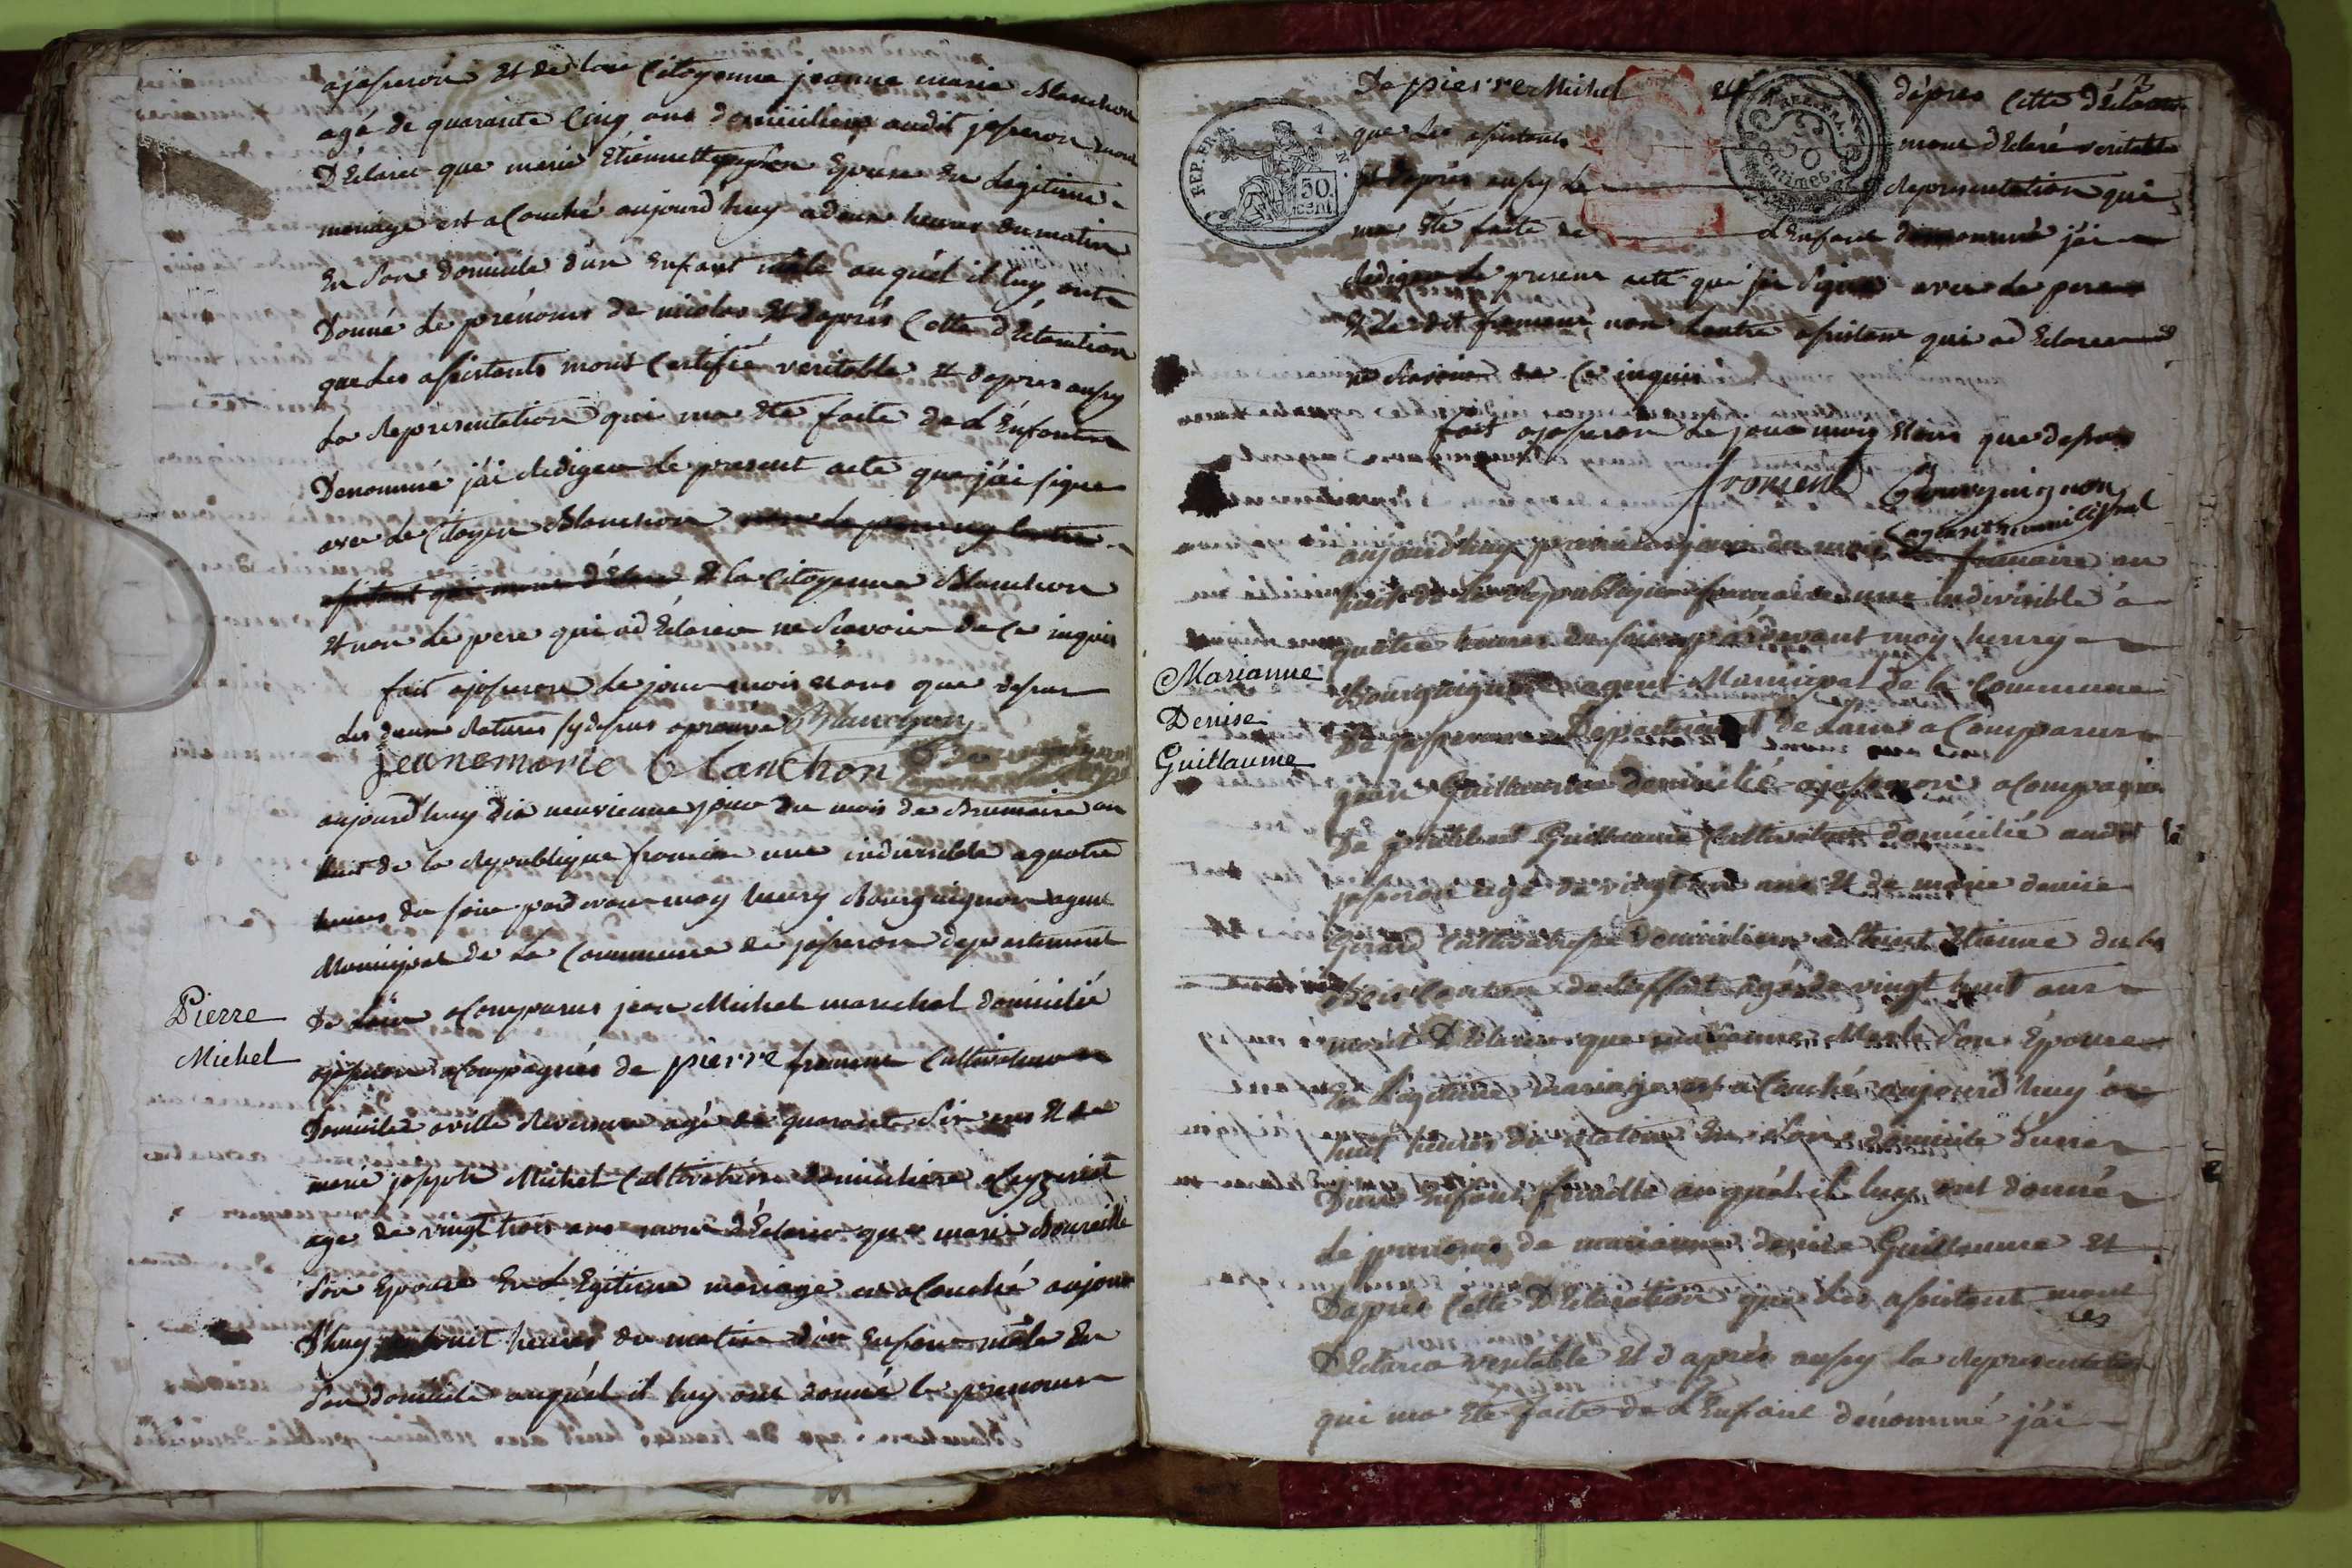 ajosseron Et de la Citoyenne jeanne marie Blanchon
agé de quarante Cinq ans domiciliere audit josseron mont
D'Eclarer que marie Etiennette Epouse En Legitime
mariage est a Couché aujourd'huy a deux heures du matin
En Son domicile d'un Enfant mâle auquel il luy ont
Donné Le prénoms de nicolas Et d'après Cette d'Eclaration
que Les assistants mont Certifié veritable Et d'apres aussy
La Representation qui ma Eté faite de L'Enfant
Denommé j'ai Rediger Le present acte que j'ai signe
avec Le Citoyen Blanchon
Et la Citoyenne Blanchon
Et non Le pere qui ad Eclarer ne Scavoir de Ce inquis
fait ajosseron Le jour mois Et ans que dessus
Les deux Ratures sydessus aprouvé Blanchon
Jeanemarie Blanchon
aujourd'huy dix neuvienne jour du mois de Brumaire an
huit de la Republique francaise une indivisible a quatre
heures du soir pardevant moy henry Bourguignon agent
Municipal de La Commune de josseron departement
De Lain a Comparus jean Michel marechal domicilié
Pierre
Michel
ajosseron acompagnés de pierre froment Cultivateur
Domicilié aville Reversure agé de quarante Six ans Et de
marie josephe Michel Cultivatrice domiciliere a
age de vingt trois ans mont d'Eclarer que marie
Son Epouse En L'Egitime mariage est a Couché aujour
d'huy huit heures du matin d'un Enfant mâle En
Son domicile auquel il luy ont donné le prenoms
De pierre Michel Et d'apres Cette d'Eclaration
que Les assistants mont d'Eclaré veritable
Et d'après aussy La Representation qui
ma Eté faite de L'Enfant denommé j'ai
Rediger Le present acte que j'ai Signer avec Le pere
Et Le dit froment non Lautre assistant qui ad Eclarer
ne Scavoir de Ce inquis
fait ajosseron Le jour mois Et ans que dessus
froment Bourguignon
agent municipal
aujourd'huy premier jour du mois de frimaire an
huit de la Republique francaise une indivisible à
quatre heures du soir pardevant moy henry
Bourguignon agent Municipal de la Commune
Marianne
Denise
Guillaume
De josseron Departement De Lain a Comparus
jean Guillaume domicilié ajosseron acompagnés
De Guillaume Cultivateur domicilié audit
josseron agé de vingt ans Et de marie denise
Cultivatrice domiciliere a Saint Etienne du
Bois Canton de Treffort agé de vingt huit ans
mont D'Eclarer que marianne Son Epouse
En Légitime mariage est a Couché aujourd'huy a
huit heures du matin En Son domicile d'une
D'une Enfant femelle auquel il luy ont donné
Le prenoms de marianne denise Guillaume Et
D'apres Cette D'Eclaration que Les assistant mont
D'Eclarer veritable Et d'après aussy la Representation
qui ma Eté faite de L'Enfant dénommé j'ai
REP. FRA.
30 cent.
REP. FRA.
50 centimes.